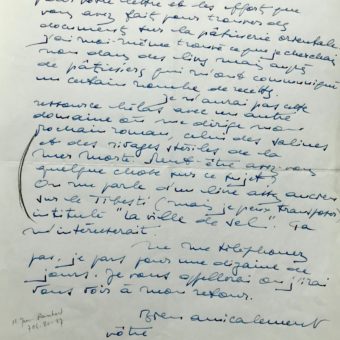 pour votre lettre et les efforts que
vous avez fait pour trouver des
documents sur la pâtisserie orientale.
j'ai moi-même trouvé ce que je cherchais
non dans des livres mais auprès
de pâtissiers qui m'ont communiqué
un certain nombre de recettes.
Je n'aurai pas cette
ressource hélas avec un autre
domaine où me dirige mon
prochain roman, celui des salines
et des rivages stériles de la
mer morte. Peut-être avez-vous
quelque chose sur ce sujet,
On me parle d'un livre assez ancien
sur le Tibesti (mais je peux transposer)
intitulé "la ville de sel". Ça
m'intéresserait.
Ne me téléphonez
pas, je pars pour une dizaine de
jours. Je vous appellerai ou j'irai
vous voir à mon retour.
Bien amicalement
vôtre